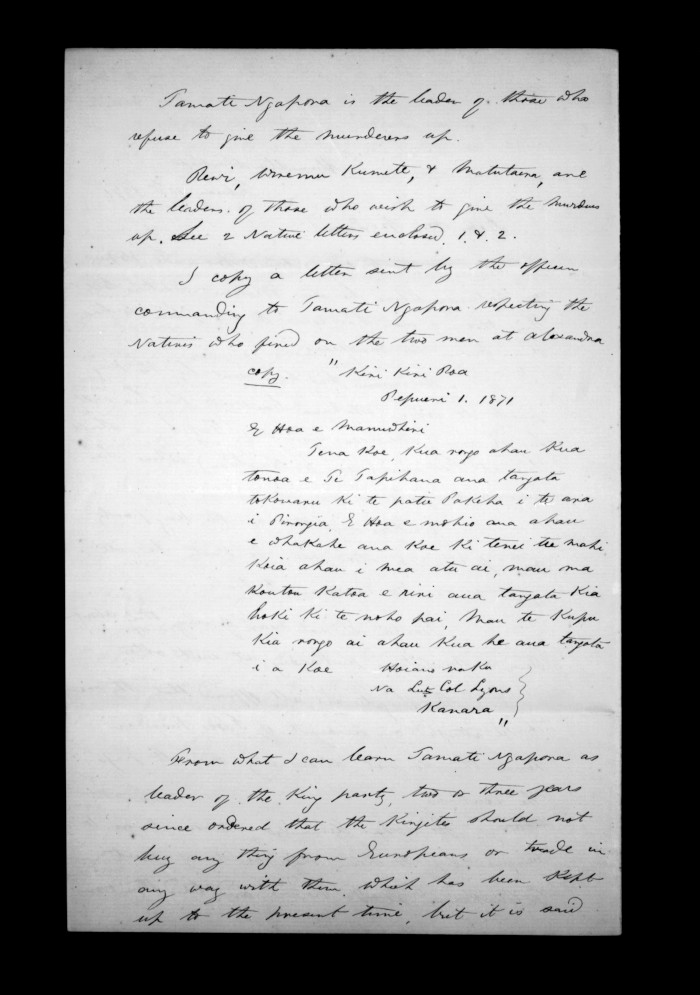 Tamati Ngapora is the leader of those who
refuse to give the murderers up.
Rewi, Wiremu Kumete, & Matutaera, are
the leaders of those who wish to give the murderers
up. See 2 Native letters enclosed. 1. & 2.
I copy a letter sent by the officer
commanding to Tamati Ngapora respecting the
Natives who fired on the two men at Alexandra
copy. " Kiri Kiri Roa
Pepueri 1. 1871
E Hoa e Manuwhiri
Tena Koe, Kua rongo ahau Kua
tonoa e Te Tapihana ana tangata
tokowaru ki te patu Pakeha i te ara
i Pirongia, E Hoa e mohio ana ahau
e whakahe ana Koe Ki tenei tu mahi
Koia ahau i mea atu ai, mau ma
Koutou Katoa e riri aua tangata Kia
hoki ki te noho pai, Mau te Kupu
Kia rongo ai ahau Kua he aua tangata
i a Koe Hoiano naKu
Na Lut Col Lyons
Kanara "
From what I can learn Tamati Ngapora as
leader of the King party, two or three years
since ordered that the Kingites should not
buy any thing from Europeans or trade in
any way with them, which has been Kept
up to the present time, but it is said